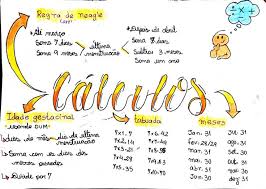 Regra de neagle
(DPP)
• Até março
Soma 7 dias
Soma 9 meses
última menstruação
• Depois de abril
Soma 7 dias
Subtrai 3 meses
Soma um ano
cálculos
Idade gestacional
usando DUM:
dias do mês - dia da última menstruação
• Soma com os dias dos meses passados
• Divide por 7
tabuada
7x1. 7
7x2. 14
7x3. 21
7x4. 28
7x5. 35
7x6. 42
7x7. 49
7x8. 56
7x9. 63
meses
Jan. 31
fev. 28/29
mar. 31
abr. 30
mai. 31
Jun. 30
Jul. 31
ago. 31
set. 30
out. 31
nov. 30
dez. 31